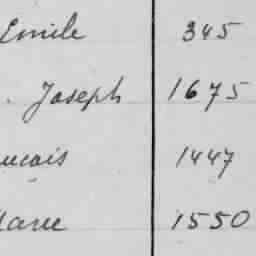 Emile 345
. Joseph 1675
ncois 1447
Marie 1550